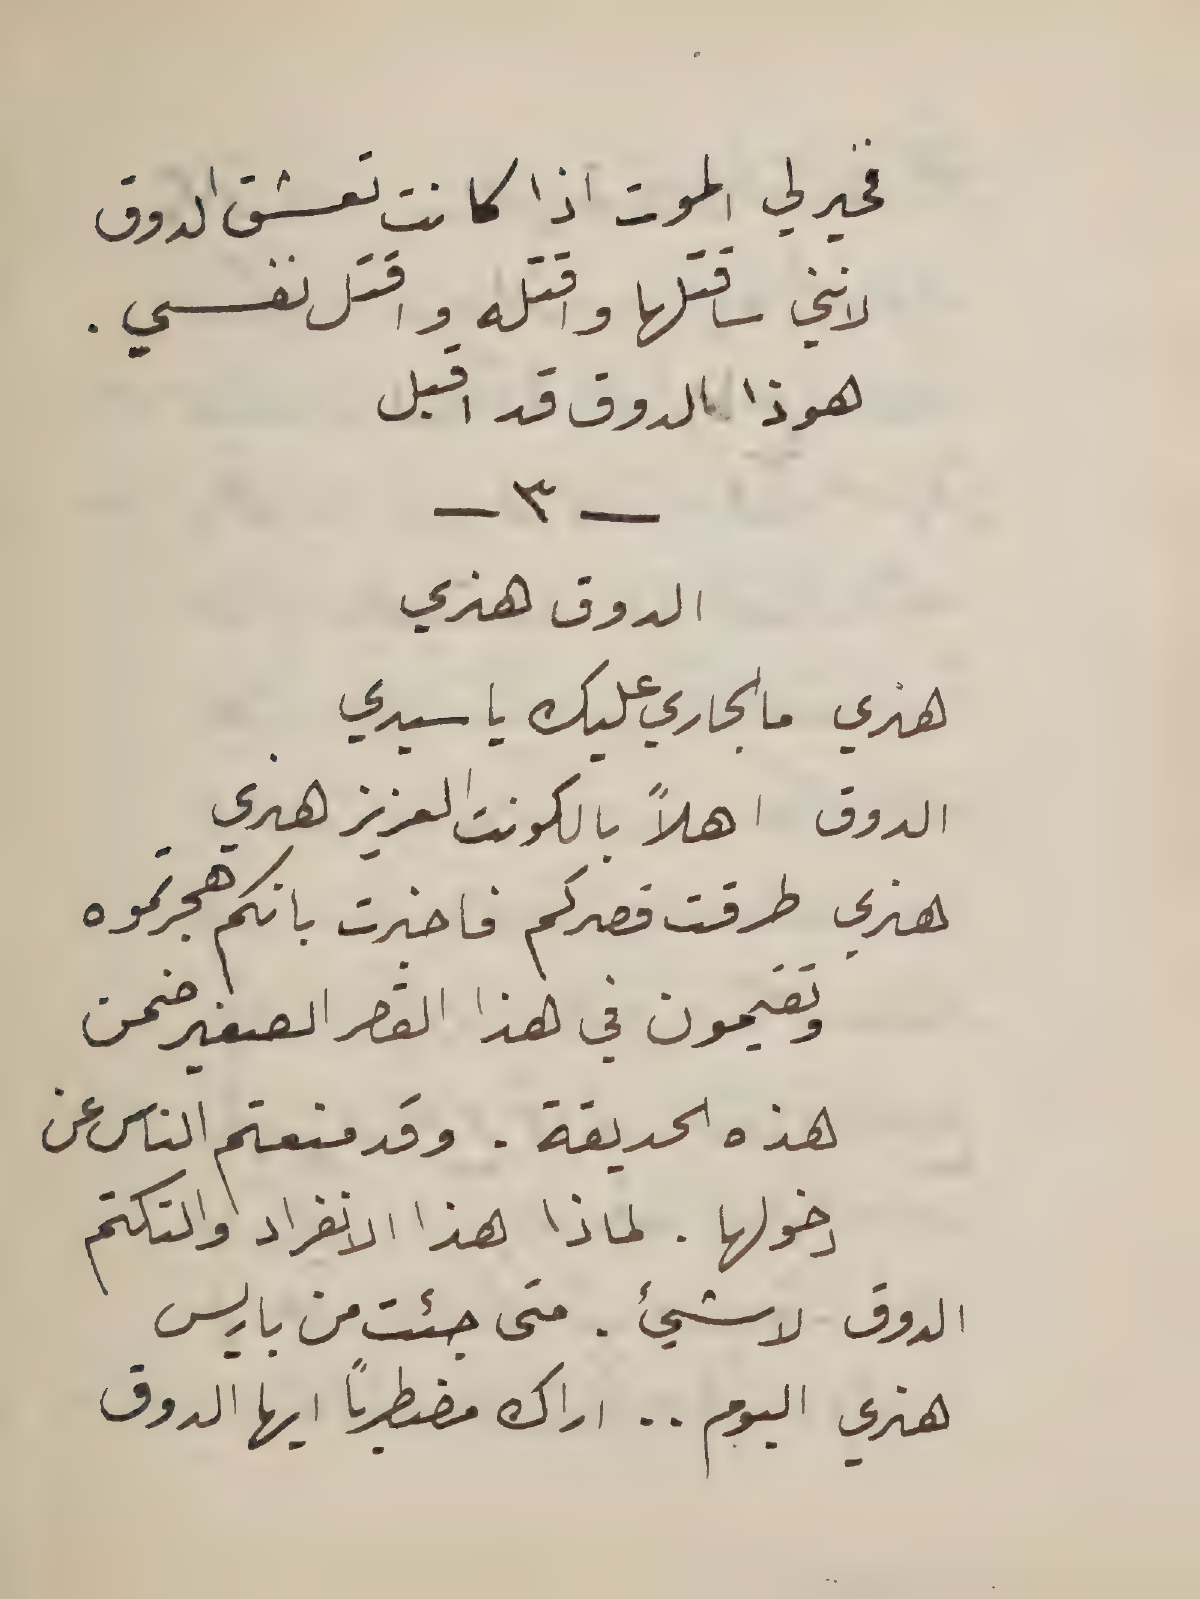 فخير لي الموت اذا كانت تعشق الدوق
لانني ساقتلها واقتله واقتل نفسي .
هوذا الدوق قد اقبل
— ٣ —
الدوق هنري
هنري ما الجاري عليك يا سيدي
الدوق اهلاً بالكونت العزيز هنري
هنري طرقت قصركم فاخبرت بانكم هجرتموه
وتقيمون في هذا القصر الصغير ضمن
هذه الحديقة . وقد منعتم الناس عن
دخولها . لماذا هذا الانفراد والتكتم
الدوق لا شيئ . متى جئت من باريس
هنري اليوم .. اراك مضطرباً ايها الدوق